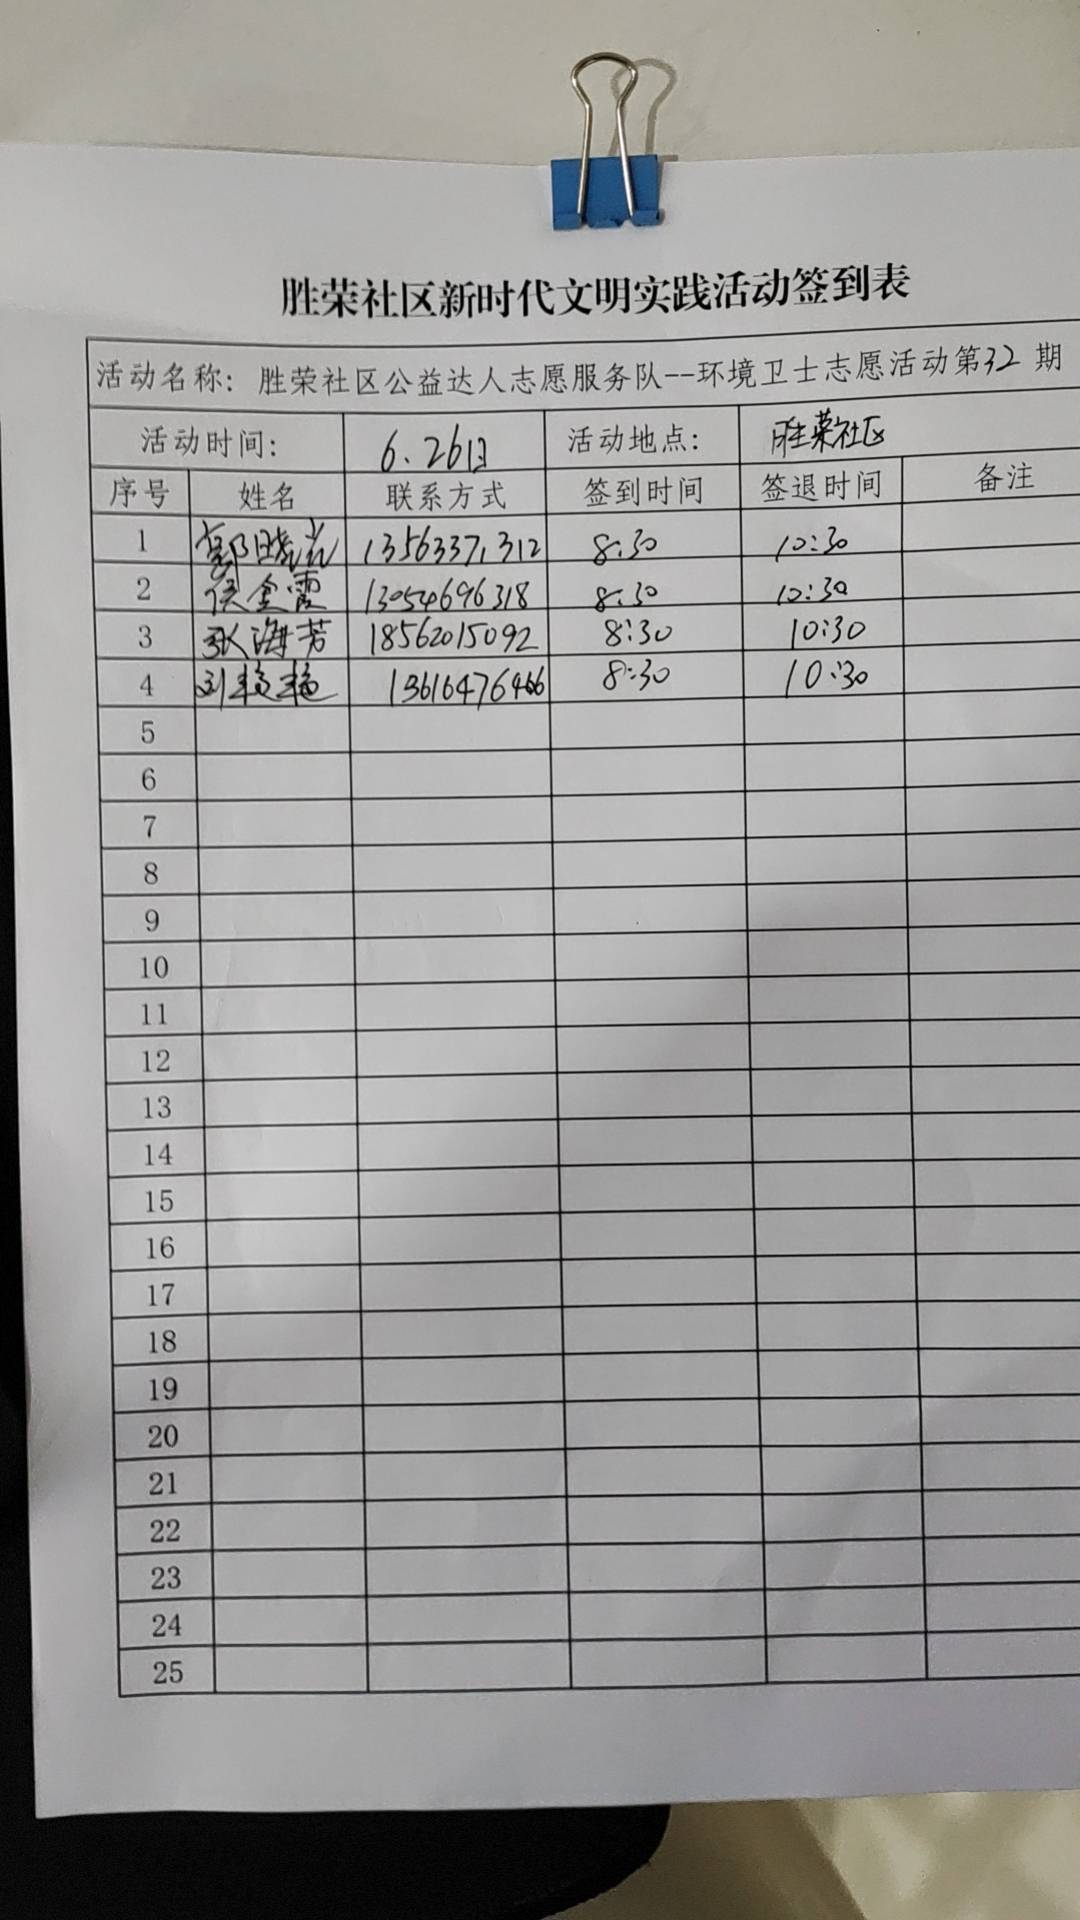 胜荣社区新时代文明实践活动签到表
活动名称：胜荣社区公益达人志愿服务队--环境卫士志愿活动第32期
活动时间： 6.26日 活动地点： 胜荣社区
序号 姓名 联系方式 签到时间 签退时间 备注
1 13563371312 8:30 10:30
2 侯金霞 13054696318 8:30 10:30
3 张海芳 18562015092 8:30 10:30
4 刘艳艳 13616476466 8:30 10:30
5
6
7
8
9
10
11
12
13
14
15
16
17
18
19
20
21
22
23
24
25